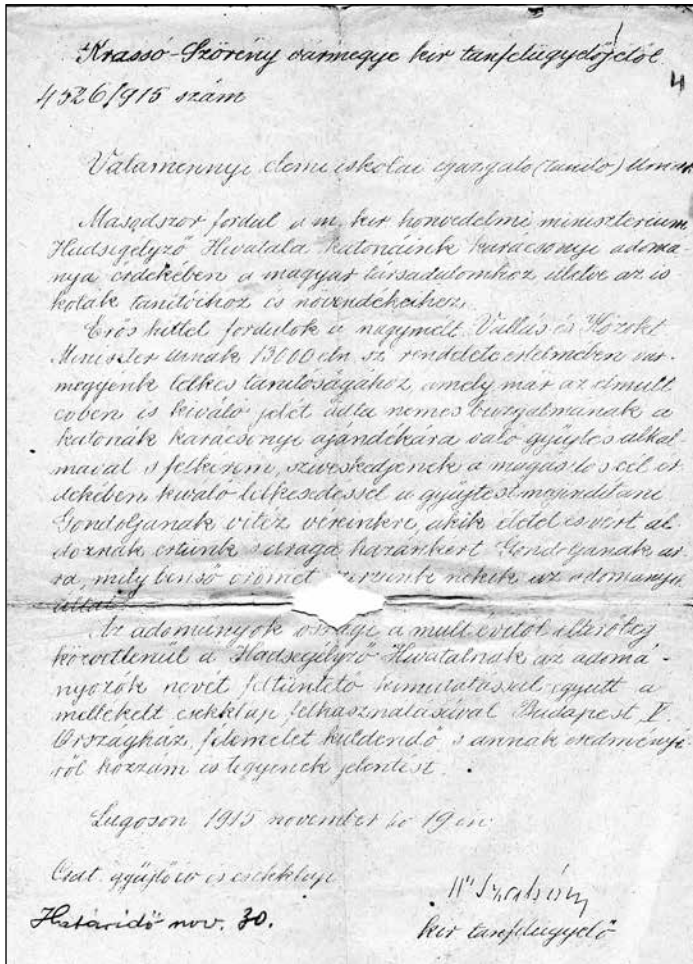 Krassó-Szörény vármegye kir tanfelügyelőjétől
4
4526/915 szám
Valamennyi elemi iskolai igazgató (tanító) Úrnak
Másodszor fordul a m. kir. honvédelmi minisztérium
Hadsegélyző Hivatala katonáink karácsonyi adomá
nya érdekében a magyar társadalomhoz illetve az is
kolák tanítóihoz és növendékeihez.
Erős hittel fordulok a nagymélt. Vallás és Közokt
Miniszter úrnak 13000 eln. sz. rendelete értelmében vár
megyénk lelkes tanítóságához, amely már az elmult
évben is kiváló jelét adta nemes buzgalmának a
katonák karácsonyi ajándékára való gyűjtés alkal
mával s felkérem, sziveskedjenek a magasztos cél ér
dekében kiváló lelkesedéssel a gyűjtést megindítani
Gondoljanak vitéz véreinkre, akik életet és vért ál
doznak értünk s drága hazánkért Gondoljanak ar
ra, mily benső örömet szerzünk nekik az adományok
által.
Az adományok összegé a mult évitől eltérőleg
közvetlenül a Hadsegélyző Hivatalnak az adomá-
nyozók nevét feltüntető kimutatással együtt a
mellékelt csekklap felhasználásával Budapest V.
Országház, félemelet küldendő s annak eredményé
ről hozzám is tegyenek jelentést.
Lugoson 1915 november hó 19 én
Csat. gyűjtőív és csekklap
Határidő nov. 30.
kir tanfelügyelő